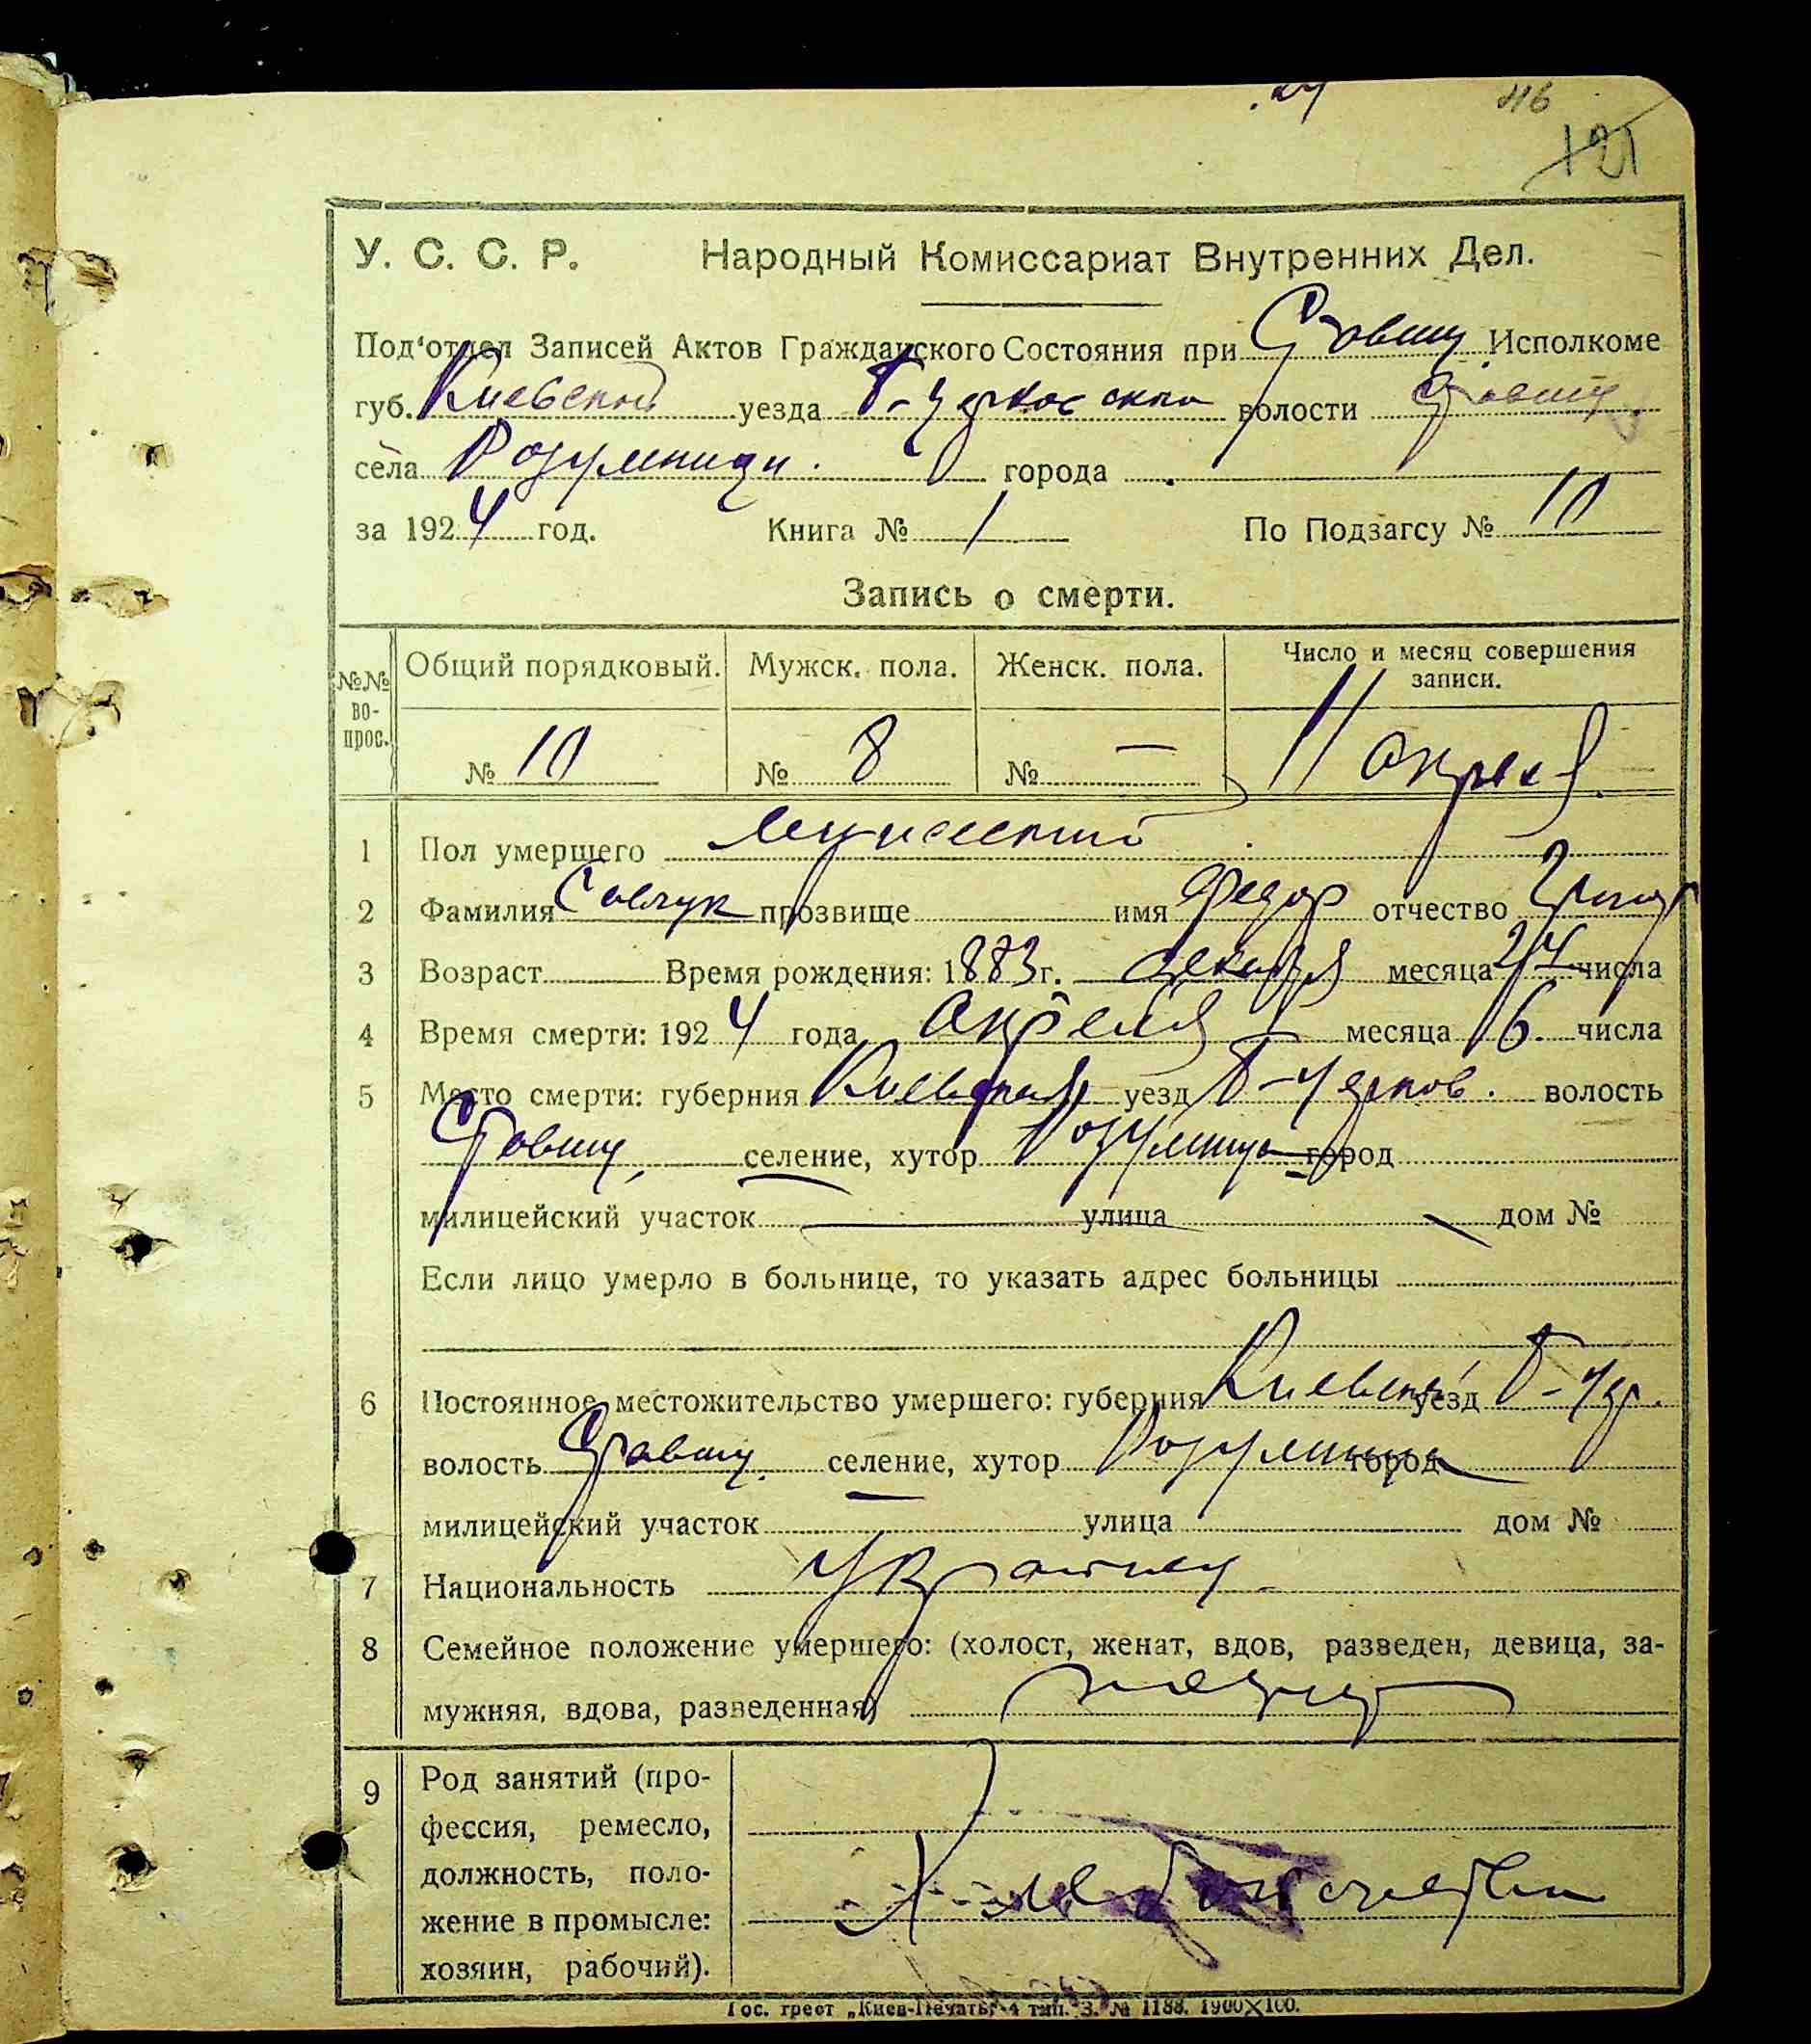 46
121
У. С. С. Р. Народный Комиссариат Внутренних Дел.
Под'отдел Записей Актов Гражданского Состояния при Ставищ Исполкоме
губ. Киевской уезда Б-Церковского волости Ставищ
села Розумници. города
за 1924 год. Книга № 1 По Подзагсу № 10
Запись о смерти.
№№ во-прос. Общий порядковый. Мужск. пола. Женск. пола. Число и месяц совершения записи.
№ 10 № 8 № — 11 апреля
1 Пол умершего мужеский
2 Фамилия Савчук прозвище имя Федор отчество Григор
3 Возраст Время рождения: 1883 г. декабря месяца 24 числа
4 Время смерти: 1924 года апреля месяца 6. числа
5 Место смерти: губерния Киевская уезд Б-Церков. волость
Ставищ, селение, хутор Розумница город
милицейский участок улица дом №
Если лицо умерло в больнице, то указать адрес больницы
6 Постоянное местожительство умершего: губерния Киевская уезд Б-Цер.
волость Ставищ. селение, хутор Розумница город
милицейский участок улица дом №
7 Национальность Украинец
8 Семейное положение умершего: (холост, женат, вдов, разведен, девица, за-
мужняя, вдова, разведенная)
9 Род занятий (про-
фессия, ремесло,
должность, поло-
жение в промысле:
хозяин, рабочий).
Гос. трест „Киев-Печать", 4 тип. З. № 1188. 1900×100.